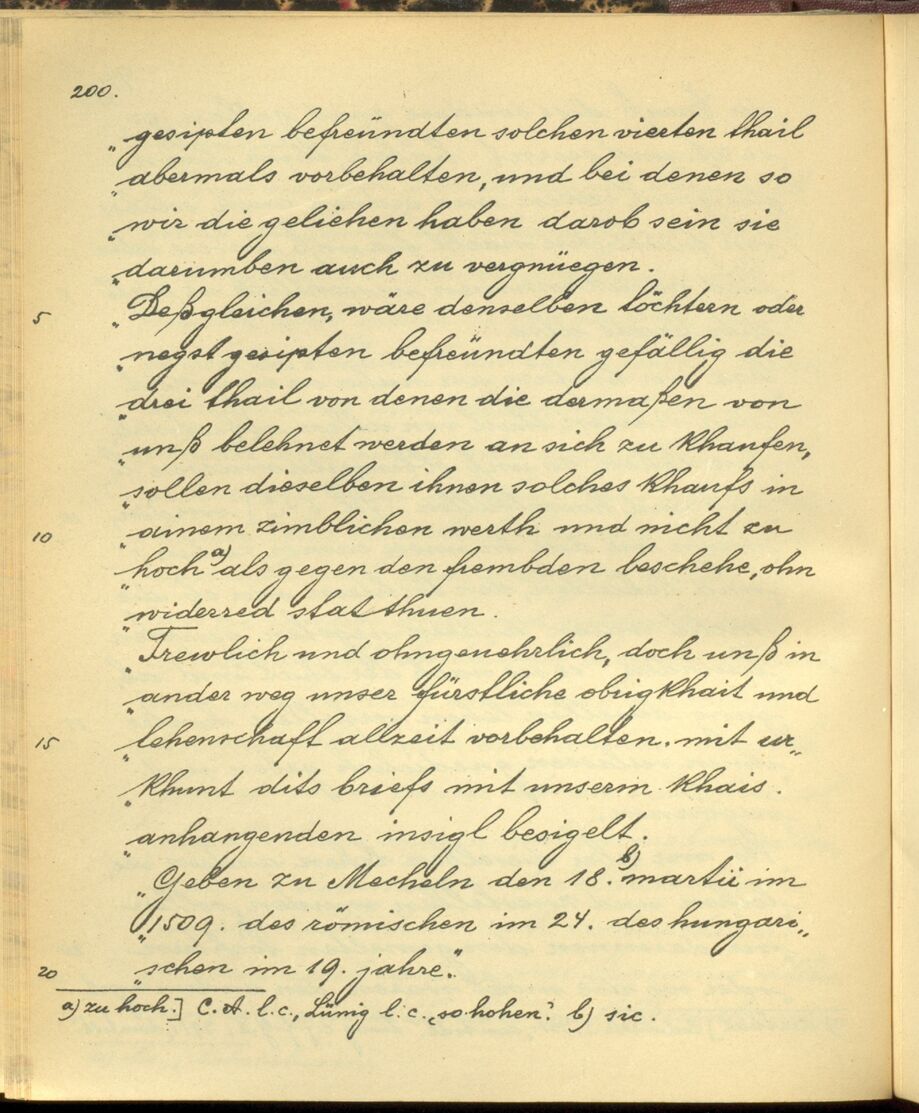 200.
„gesipten befreündten solchen vierten thail
„abermals vorbehalten, und bei denen so
„wir die geliehen haben darob sein sie
„darumben auch zu vergnüegen.
5 „Deßgleichen, wäre denselben töchtern oder
„negst gesipten befreündten gefällig die
„drei thail von denen die dermaßen von
„unß belehnet werden an sich zu khaufen,
„sollen dieselben ihnen solches khaufs in
10 „ainem zimblichen werth und nicht zu
„hoch a) als gegen den frembden beschehe, ohn
„widerred statthuen.
„Trewlich und ohngeuehrlich, doch unß in
„ander weg unser fürstliche obrigkhait und
15 „lehenschaft allzeit vorbehalten. mit ur„
„khunt dits briefs mit unserm khais.
„anhangenden insigl besigelt.
„Geben zu Mecheln den 18. b) martii im
„1509. des römischen im 24. des hungari„
20 „schen im 19. jahre“.
a) zu hoch.] C. A. l. c., Lünig l. c. „so hohen“. b) sic.